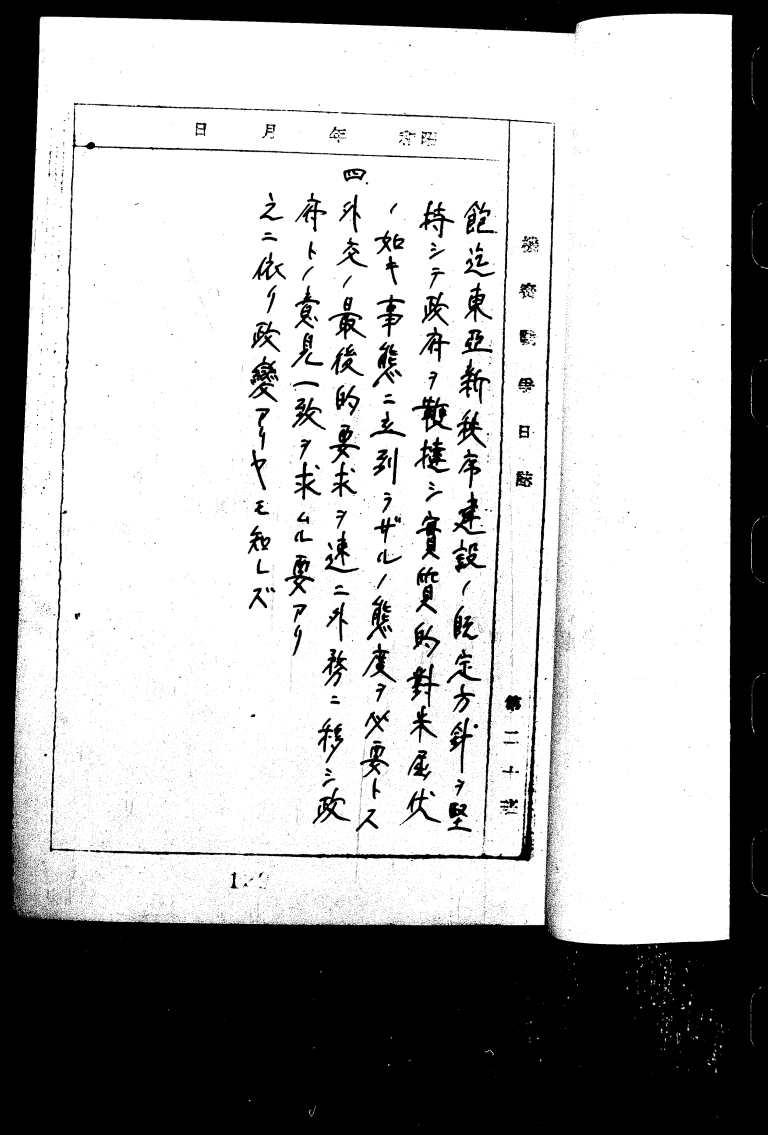 機密戦争日誌
第二十班
昭和 年 月 日
飽迄東亞新秩序建設ノ既定方針ヲ堅
持シテ政府ヲ鞭撻シ實質的對米屈伏
ノ如キ事態ニ立到ラザルノ態度ヲ必要トス
四、外交ノ最後的要求ヲ速ニ外務ニ移シ政
府トノ意見一致ヲ求ムル要アリ
之ニ依リ政變アリヤモ知レズ